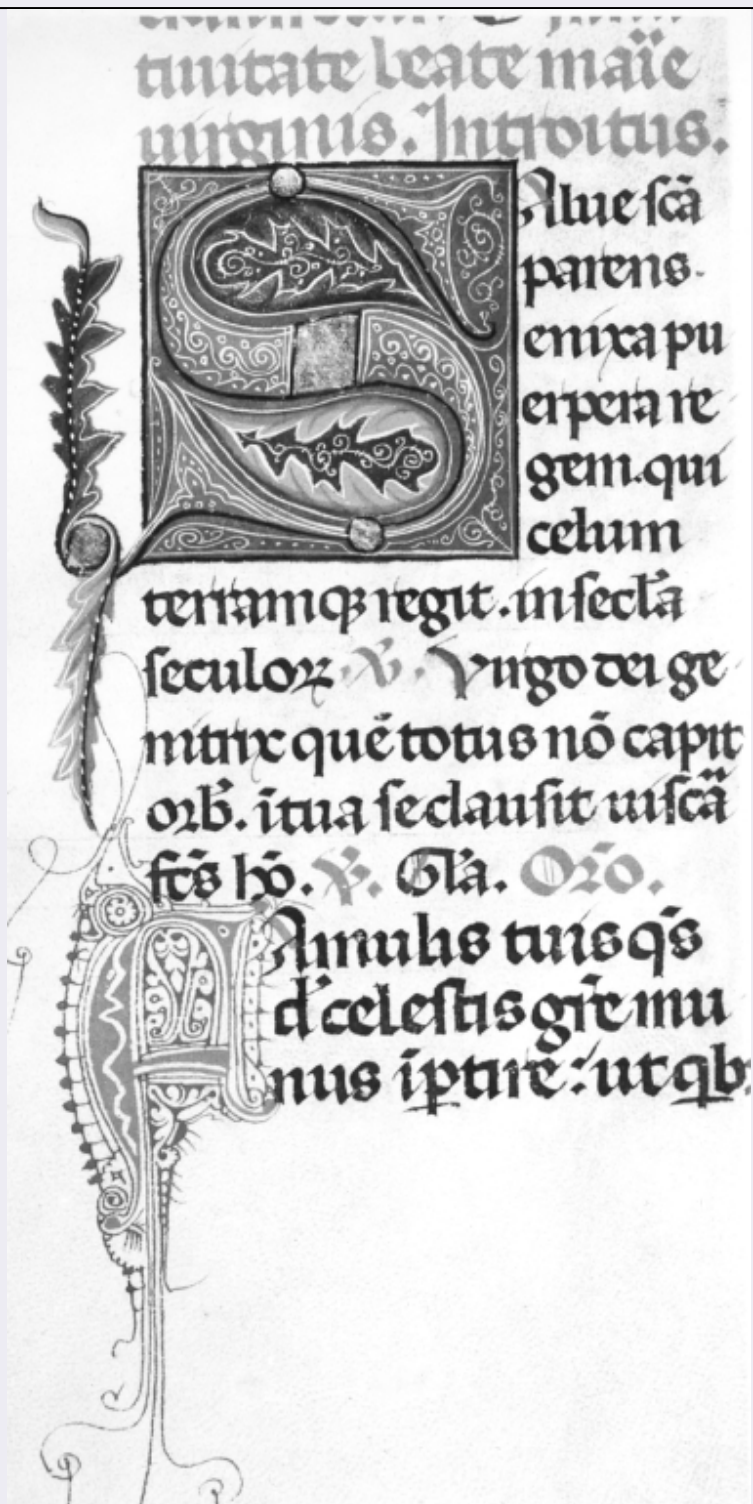 tiuitate beate maı̈e
uirginis. Introitus.
SAlue sc̄a
parens.
enixa pu
erpera re
gem. qui
celum
terramqꝫ regit. in secl̄a
seculoꝝ. ꝟ. Virgo dei ge
nitrix quē totus nō capit
orb̄. ī tua se clausit uisc̄a
fc̄s hō. ꝟ. Gl̄a. Or̄o.
FAmulis tuis qs̄
d̄ celestis gr̄e mu
nus īp̲tire: ut qb